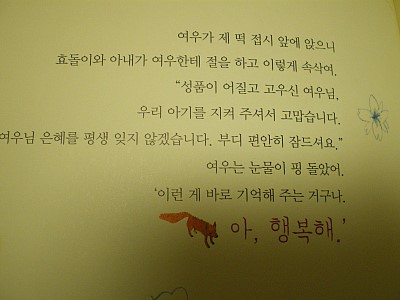 여우가 제 떡 접시 앞에 앉으니
효돌이와 아내가 여우한테 절을 하고 이렇게 속삭여.
“성품이 어질고 고우신 여우님,
우리 아기를 지켜 주셔서 고맙습니다.
여우님 은혜를 평생 잊지 않겠습니다. 부디 편안히 잠드셔요.”
여우는 눈물이 핑 돌았어.
‘이런 게 바로 기억해 주는 거구나.
아, 행복해.’